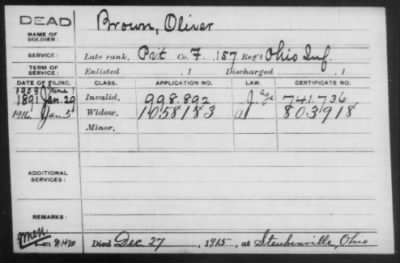 DEAD
NAME OF SOLDIER:
Brown, Oliver
SERVICE:
Late rank, Pvt Co. F. 157 Reg't Ohio Inf.
TERM OF SERVICE:
Enlisted , 1 Discharged , 1
DATE OF FILING. CLASS. APPLICATION NO. LAW. CERTIFICATE NO.
1908 June 1
1891 Jan. 29 Invalid, 998.892 741.736
1916 Jan 5 Widow, 1058183 803918
Minor,
ADDITIONAL SERVICES:
REMARKS:
Died Dec 27, 1915 at Steubenville, Ohio